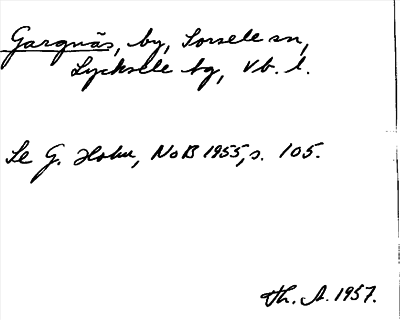 Gargnäs, by, Sorsele sn,
Lycksele tg, Vb. l.
Se G. Holm, NoB 1955, s. 105.
Th. A. 1957.